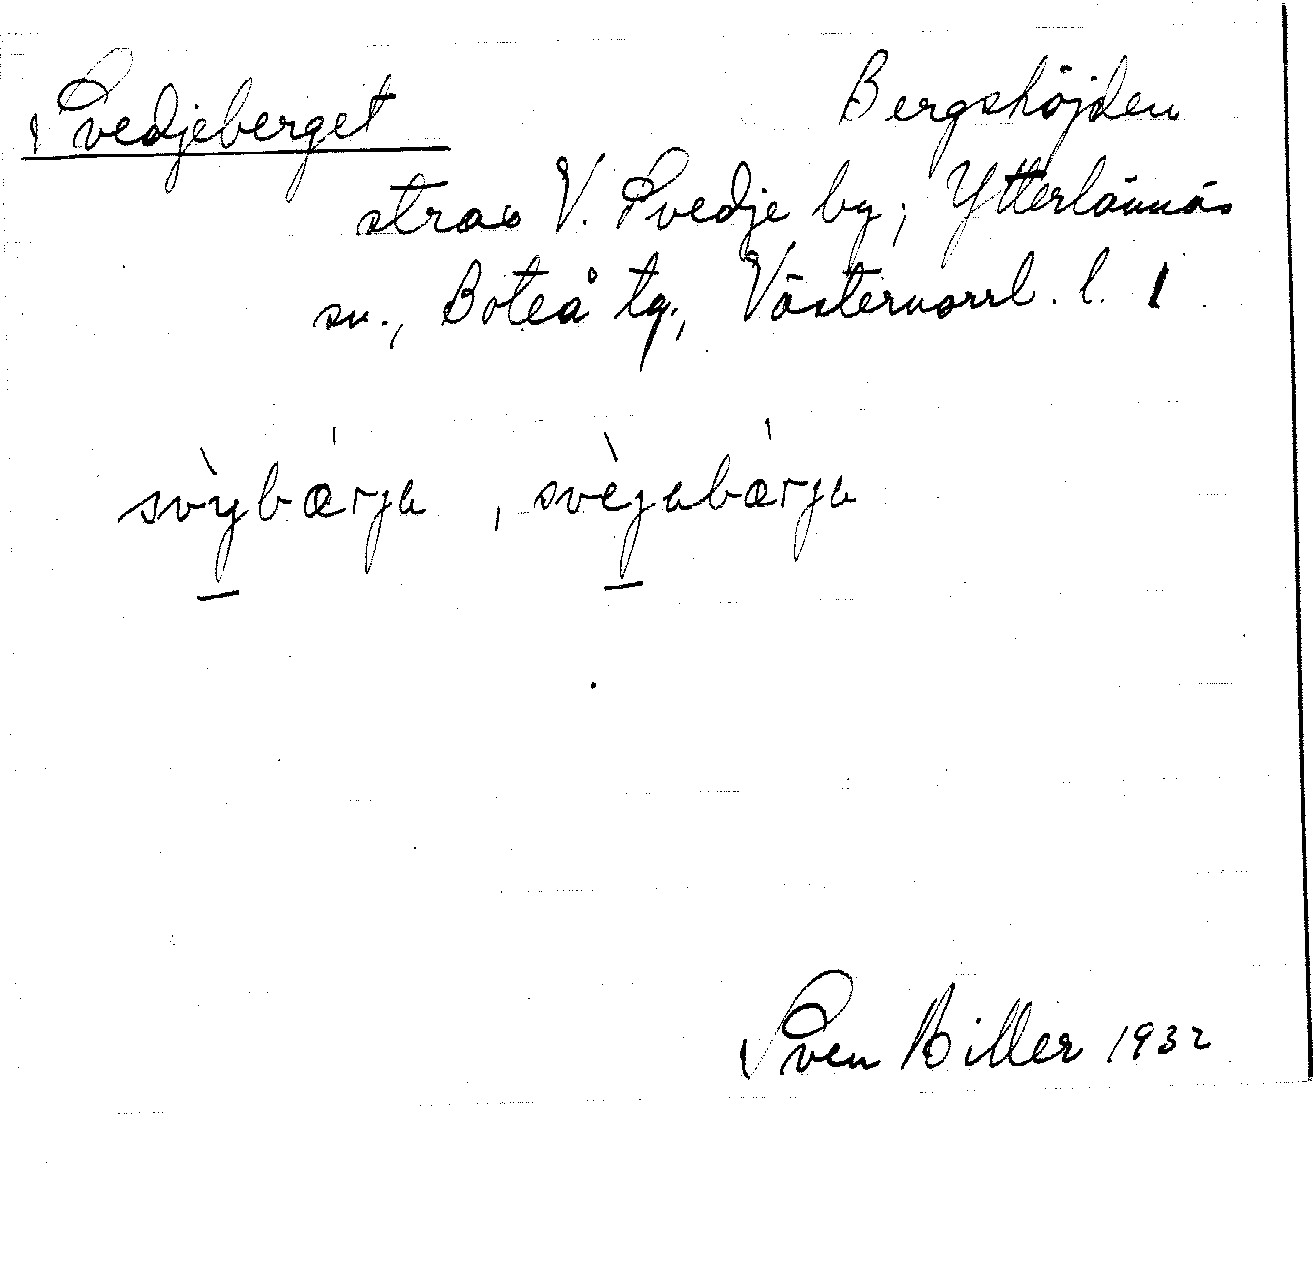 Svedjeberget Bergshöjden
strax V. Svedje by; Ytterlännäs
sn., Boteå tg., Västernorrl. l. 1
svỳbærja, svèjabærja
Sven Biller 1932